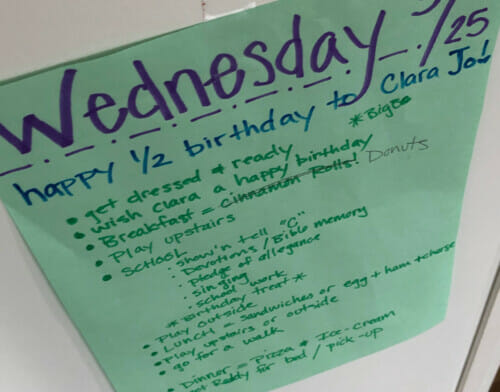 Wednesday 3/25
happy 1/2 birthday to Clara Jo!
• get dressed & ready *BigBo
• wish Clara a happy birthday
• Breakfast = Cinnamon Rolls! Donuts
• Play upstairs
• SCHOOL
: show'n tell "C"
: Devotions / Bible memory
: Pledge of allegance
: singing
: school work
*Birthday treat*
• Play Outside
• Lunch = sandwiches or egg + ham + cheese
• Play upstairs or outside
• go for a walk
• Dinner = Pizza * Ice-cream
Ready for bed / pick-up